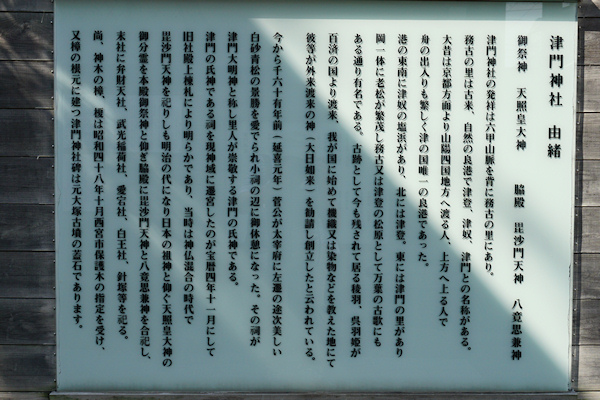 津門神社 由緒
御祭神 天照皇大神 脇殿 毘沙門天神 八意思兼神
津門神社の発祥は六甲山脈を背に務古の里にあり。
務古の里は古来、自然の良港で津登、津奴、津門との名称がある。
大昔は京都方面より山陽四国地方へ渡る人、上方へ上る人で
舟の出入りも繁しく津の国唯一の良港であった。
港の東南に津奴の塩浜があり、北には津登、東には津門の里があり
岡一体に老松が繁茂し務古又は津登の松原として万葉の古歌にも
ある通り有名である。古跡として今も残されて居る稜羽、呉羽姫が
百済の国より渡来、我が国に始めて機織又は染物などを教えた地にて
彼等が外来渡来の神(大日如来)を勧請し創立したと云われている。
今から千六十有年前(延喜元年)菅公が太宰府に左遷の途次美しい
白砂青松の景勝を愛でられ小祠の辺に御休憩になった。その祠が
津門大明神と称し里人が崇敬する津門の氏神である。
津門の氏神である祠を現神域に遷宮したのが宝暦四年十一月にして
旧社殿上棟札により明らかであり、当時は神仏混合の時代で
毘沙門天神を祀りしも明治の代になり日本の祖神と仰ぐ天照皇大神の
御分霊を本殿御祭神と仰ぎ脇殿に毘沙門天神と八意思兼神を合祀し、
末社に弁財天社、武光稲荷社、愛宕社、白王社、針塚等を祀る。
尚、神木の樟、榎は昭和四十八年十月西宮市保護木の指定を受け、
又樟の根元に建つ津門神社碑は元大塚古墳の蓋石であります。